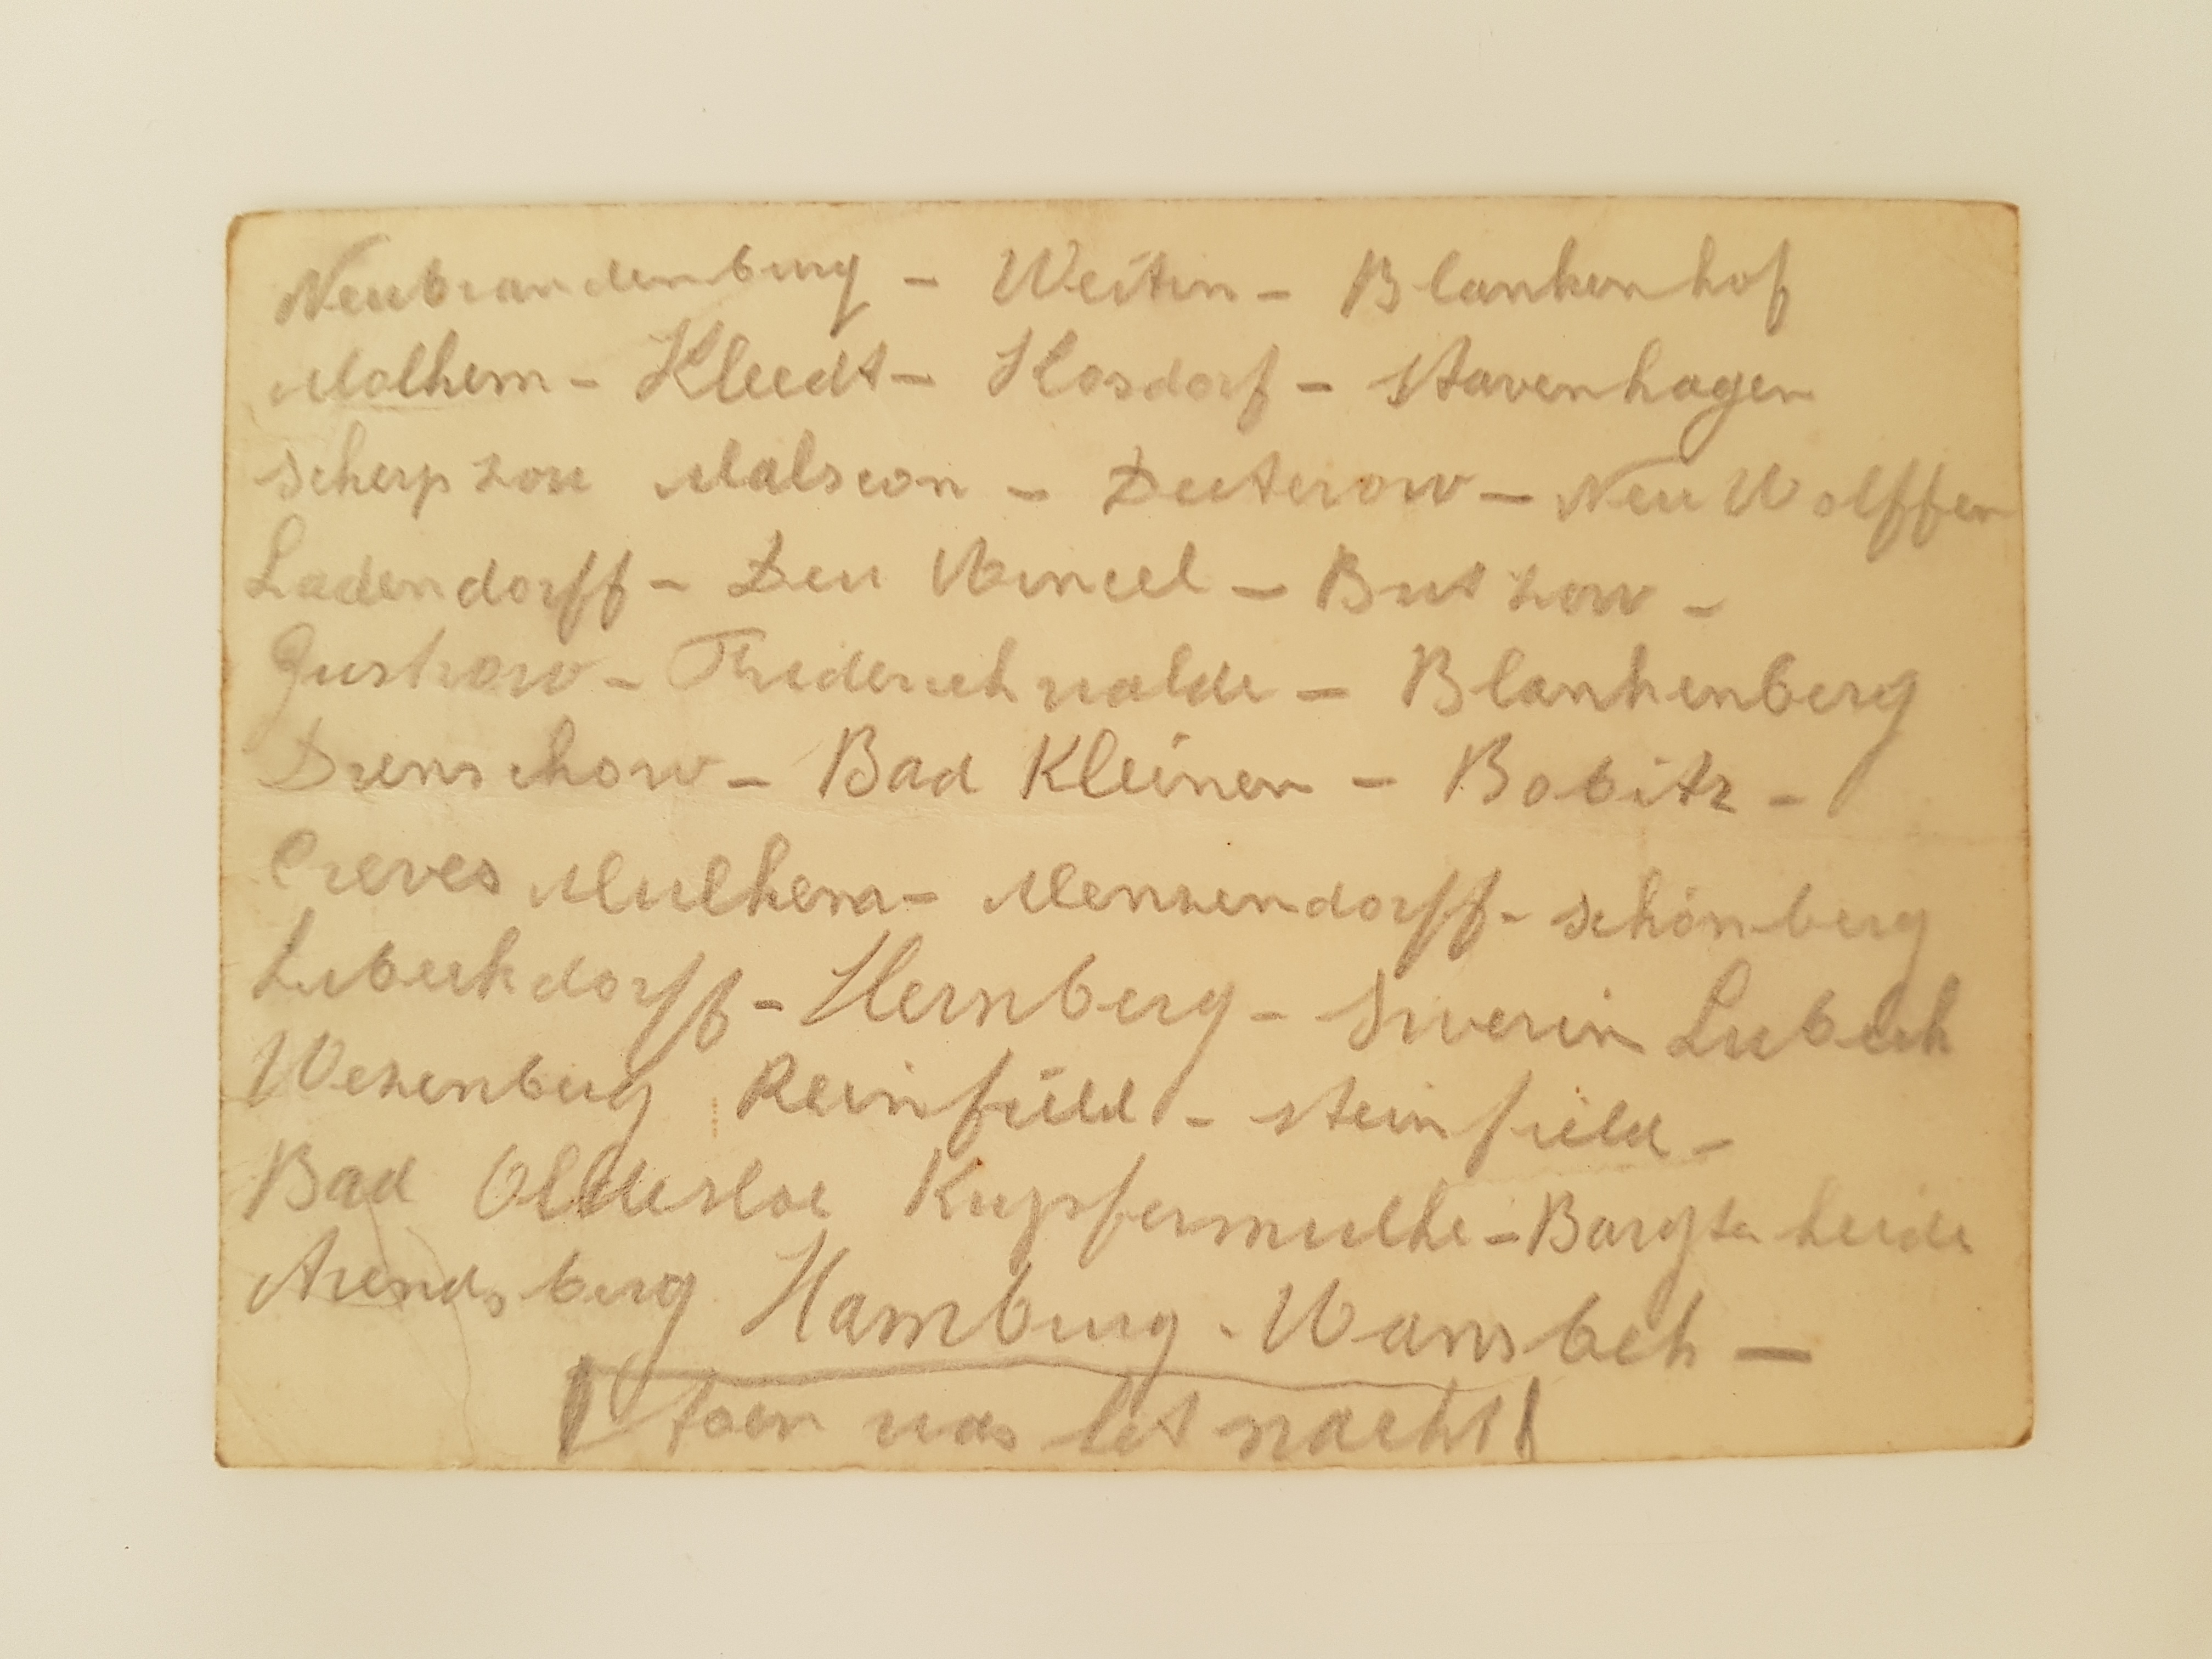 Neubrandenburg - Weitin - Blankenhof
Molhem - Kleedt - Hosdorf - Stavenhagen
Scherpzow Malscon - Deuterow - Neu Wolffen
Ladendorff - Deu Wincel - Butzow -
Gustrow - Friederichwalde - Blankenberg
Drenschow - Bad Kleinen - Bobitz -
Creves Mulhem - Menzendorff - Schönberg
Lubeckdorff - Hernberg - Swerin Lubeck
Wezenberg Reinfield - Steinfield -
Bad Oldesloe Kupfermulhe - Bargteheide
Arendsberg Hamburg - Wansbek -
toen was het nacht!